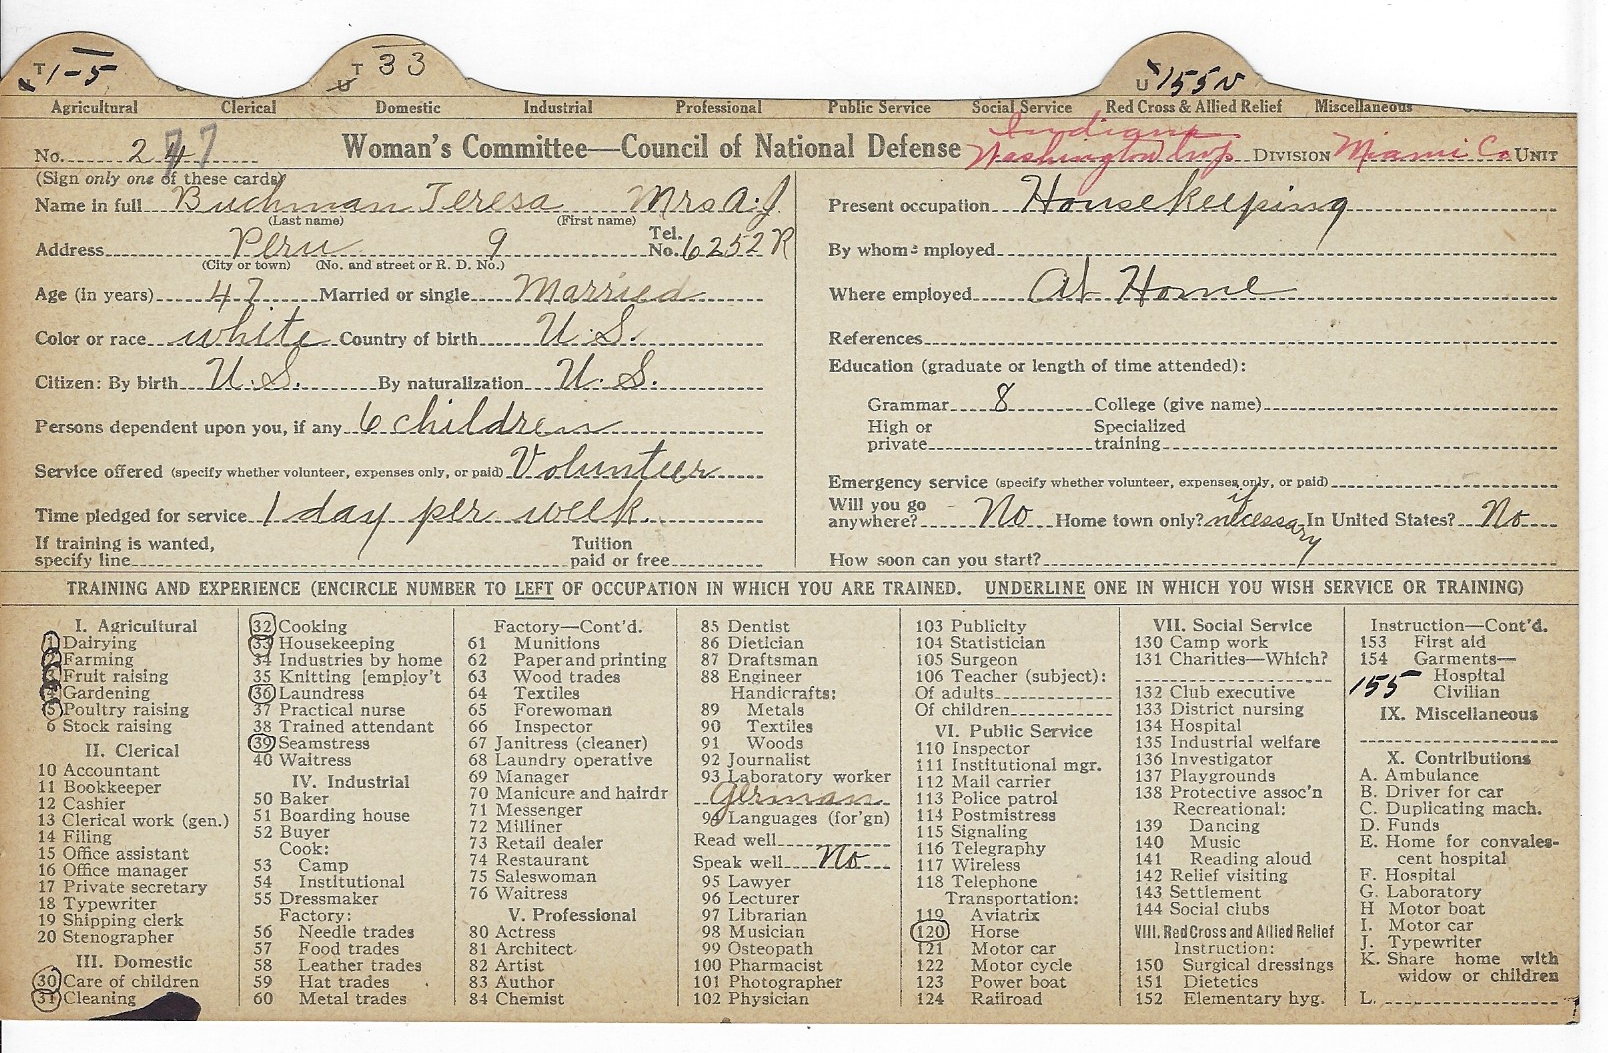 T 1-5 T 33 U 155 N
Agricultural Clerical Domestic Industrial Professional Public Service Social Service Red Cross & Allied Relief Miscellaneous
Indiana
No. 277 Woman's Committee—Council of National Defense Washington twp. DIVISION Miami Co. UNIT
(Sign only one of these cards)
Name in full Buchman Teresa Mrs A. J.
(Last name) (First name)
Address Peru 9 Tel. No. 6252 R
(City or town) (No. and street or R. D. No.)
Age (in years) 47 Married or single Married
Color or race white Country of birth U. S.
Citizen: By birth U. S. By naturalization U. S.
Persons dependent upon you, if any 6 children
Service offered (specify whether volunteer, expenses only, or paid) Volunteer
Time pledged for service 1 day per week
If training is wanted, specify line Tuition paid or free
Present occupation Housekeeping
By whom employed
Where employed At Home
References
Education (graduate or length of time attended):
Grammar 8 College (give name)
High or private Specialized training
Emergency service (specify whether volunteer, expenses only, or paid)
Will you go anywhere? No Home town only? if necessary In United States? No
How soon can you start?
TRAINING AND EXPERIENCE (ENCIRCLE NUMBER TO LEFT OF OCCUPATION IN WHICH YOU ARE TRAINED. UNDERLINE ONE IN WHICH YOU WISH SERVICE OR TRAINING)
I. Agricultural
1 Dairying
2 Farming
3 Fruit raising
4 Gardening
5 Poultry raising
6 Stock raising
II. Clerical
10 Accountant
11 Bookkeeper
12 Cashier
13 Clerical work (gen.)
14 Filing
15 Office assistant
16 Office manager
17 Private secretary
18 Typewriter
19 Shipping clerk
20 Stenographer
III. Domestic
30 Care of children
31 Cleaning
32 Cooking
33 Housekeeping
34 Industries by home
35 Knitting [employ't
36 Laundress
37 Practical nurse
38 Trained attendant
39 Seamstress
40 Waitress
IV. Industrial
50 Baker
51 Boarding house
52 Buyer
Cook:
53 Camp
54 Institutional
55 Dressmaker
Factory:
56 Needle trades
57 Food trades
58 Leather trades
59 Hat trades
60 Metal trades
Factory—Cont'd.
61 Munitions
62 Paper and printing
63 Wood trades
64 Textiles
65 Forewoman
66 Inspector
67 Janitress (cleaner)
68 Laundry operative
69 Manager
70 Manicure and hairdr
71 Messenger
72 Milliner
73 Retail dealer
74 Restaurant
75 Saleswoman
76 Waitress
V. Professional
80 Actress
81 Architect
82 Artist
83 Author
84 Chemist
85 Dentist
86 Dietician
87 Draftsman
88 Engineer
Handicrafts:
89 Metals
90 Textiles
91 Woods
92 Journalist
93 Laboratory worker
German
94 Languages (for'gn)
Read well
Speak well No
95 Lawyer
96 Lecturer
97 Librarian
98 Musician
99 Osteopath
100 Pharmacist
101 Photographer
102 Physician
103 Publicity
104 Statistician
105 Surgeon
106 Teacher (subject):
Of adults
Of children
VI. Public Service
110 Inspector
111 Institutional mgr.
112 Mail carrier
113 Police patrol
114 Postmistress
115 Signaling
116 Telegraphy
117 Wireless
118 Telephone
Transportation:
119 Aviatrix
120 Horse
121 Motor car
122 Motor cycle
123 Power boat
124 Railroad
VII. Social Service
130 Camp work
131 Charities—Which?
132 Club executive
133 District nursing
134 Hospital
135 Industrial welfare
136 Investigator
137 Playgrounds
138 Protective assoc'n
Recreational:
139 Dancing
140 Music
141 Reading aloud
142 Relief visiting
143 Settlement
144 Social clubs
VIII. Red Cross and Allied Relief
Instruction:
150 Surgical dressings
151 Dietetics
152 Elementary hyg.
Instruction—Cont'd.
153 First aid
154 Garments—
Hospital
155 Civilian
IX. Miscellaneous
X. Contributions
A. Ambulance
B. Driver for car
C. Duplicating mach.
D. Funds
E. Home for convales-
cent hospital
F. Hospital
G. Laboratory
H Motor boat
I. Motor car
J. Typewriter
K. Share home with
widow or children
L.